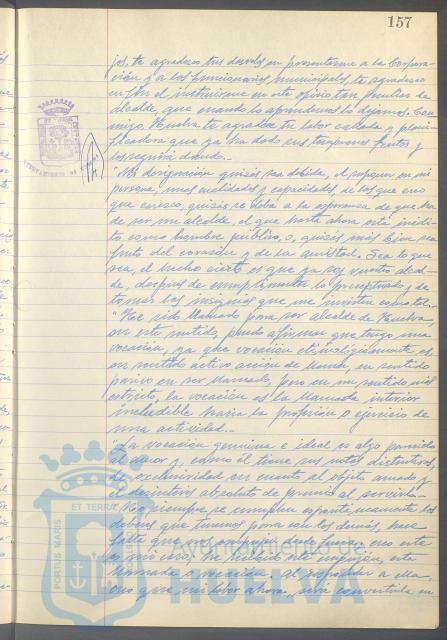 157
jos, te agradezco tus desvelos en presentarme a la Corpora-
ción y a los funcionarios municipales, te agradezco
en fin el instruirme en este oficio tan peculiar de
alcalde, que cuando lo aprendemos lo dejamos. Con-
migo Huelva te agradece tu labor callada y plani-
ficadora que ya ha dado sus tempranos frutos y
los seguirá dando.-
"Mi designación quizás sea debida, el suponer en mi
persona, unas cualidades y capacidades de las que creo
que carezco, quizás se deba a la esperanza de que ha
de ser un alcalde, el que hasta ahora está inédi-
to como hombre público, o, quizás más bien sea
fruto del corazón y de la amistad. Sea lo que
sea, el hecho cierto es que ya soy vuestro alcal-
de, después de cumplimentar lo preceptuado y de
tomar las insignias que me invisten como tal.-
"He sido llamado para ser alcalde de Huelva,
en este sentido, puedo afirmar que tengo una
vocación, ya que vocación etimológicamente es
en sentido activo acción de llamar, en sentido
pasivo en ser llamado, pero en un sentido más
estricto, la vocación es la llamada interior
ineludible hacia la profesión o ejercicio de
una actividad.-
"La vocación genuina e ideal es algo parecido
al amor y, como él tiene sus notas distintivas,
de exclusividad en cuanto al objeto amado y
el desinterés absoluto de premio al servirlo.-
"No siempre se cumplen espontáneamente los
deberes que tenemos para con los demás, hace
falta que nos empujen desde fuera: creo este
es mi caso; he recibido este empujón, esta
llamada o vocación y al responder a ella,
creo que mi labor ahora, será convertirla en
AYUNTAMIENTO DE
PORTUS MARIS
ET TERRAE
Ayuntamiento de
HUELVA